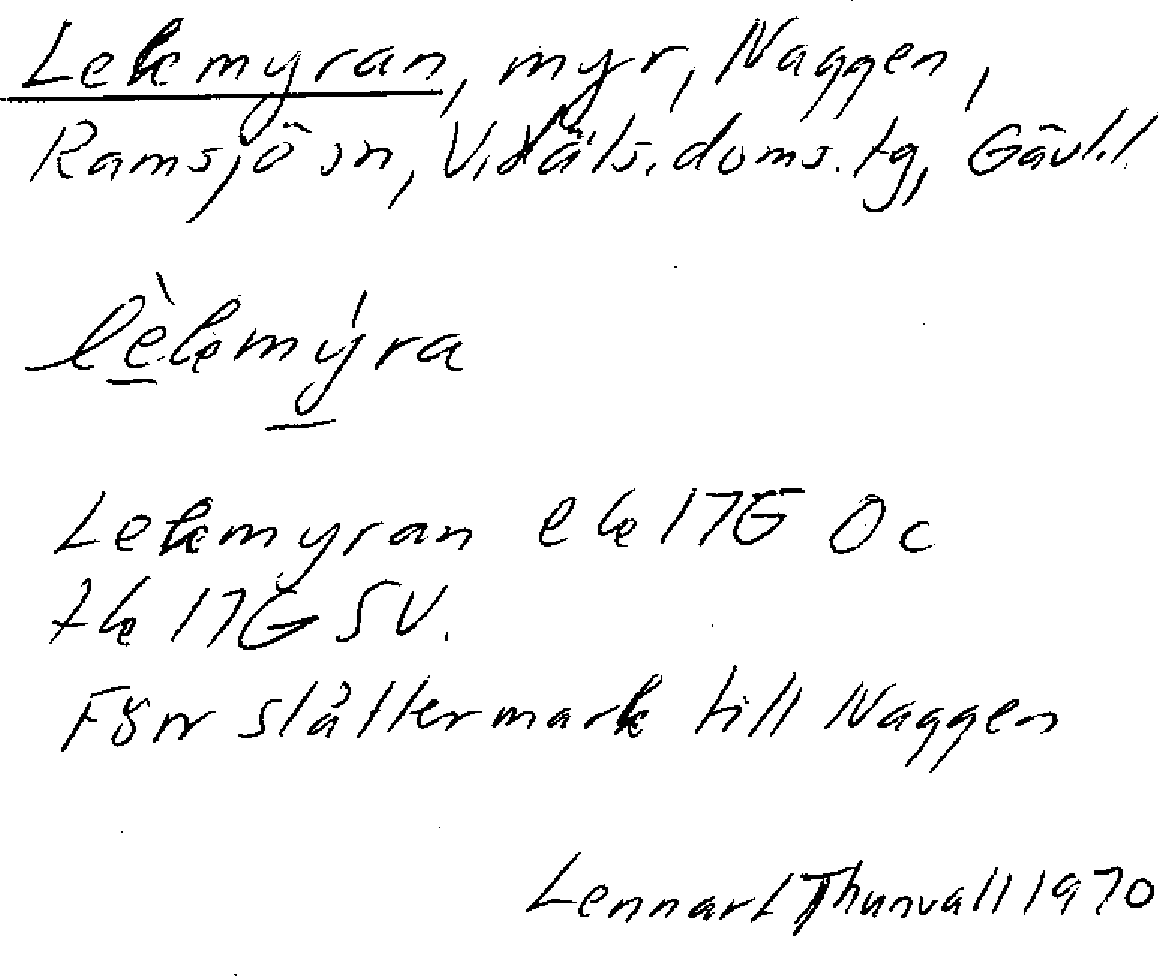 Lekmyran, myr, Naggen,
Ramsjö sn, V. Häls. doms. tg, Gävl.l.
lèkmýra
Lekmyran ek 17G Oc
tk 17G SV.
Förr slåttermark till Naggen
Lennart Thunvall 1970